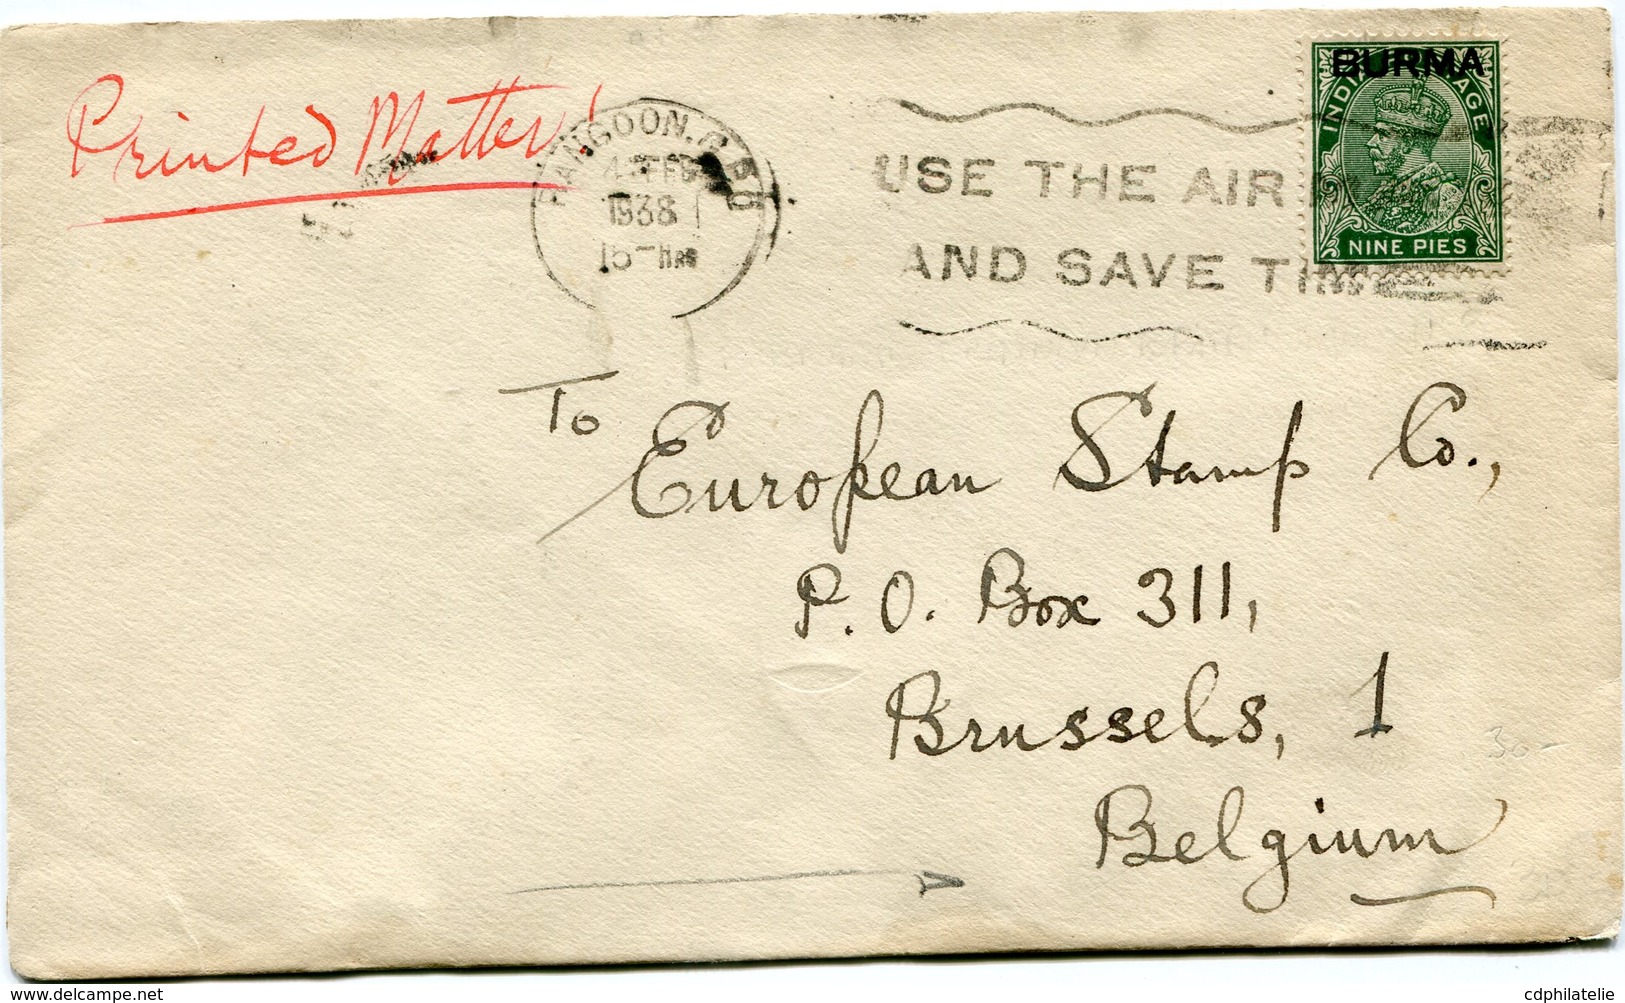 Printed Matter!
RANGOON. G.P.O
4 FEB
1938
15-HRS
USE THE AIR
AND SAVE TIME
BURMA
INDIA POSTAGE
NINE PIES
To
European Stamp Co.,
P.O. Box 311,
Brussels, 1
30-
Belgium
delcampe.net
cdphilatelie